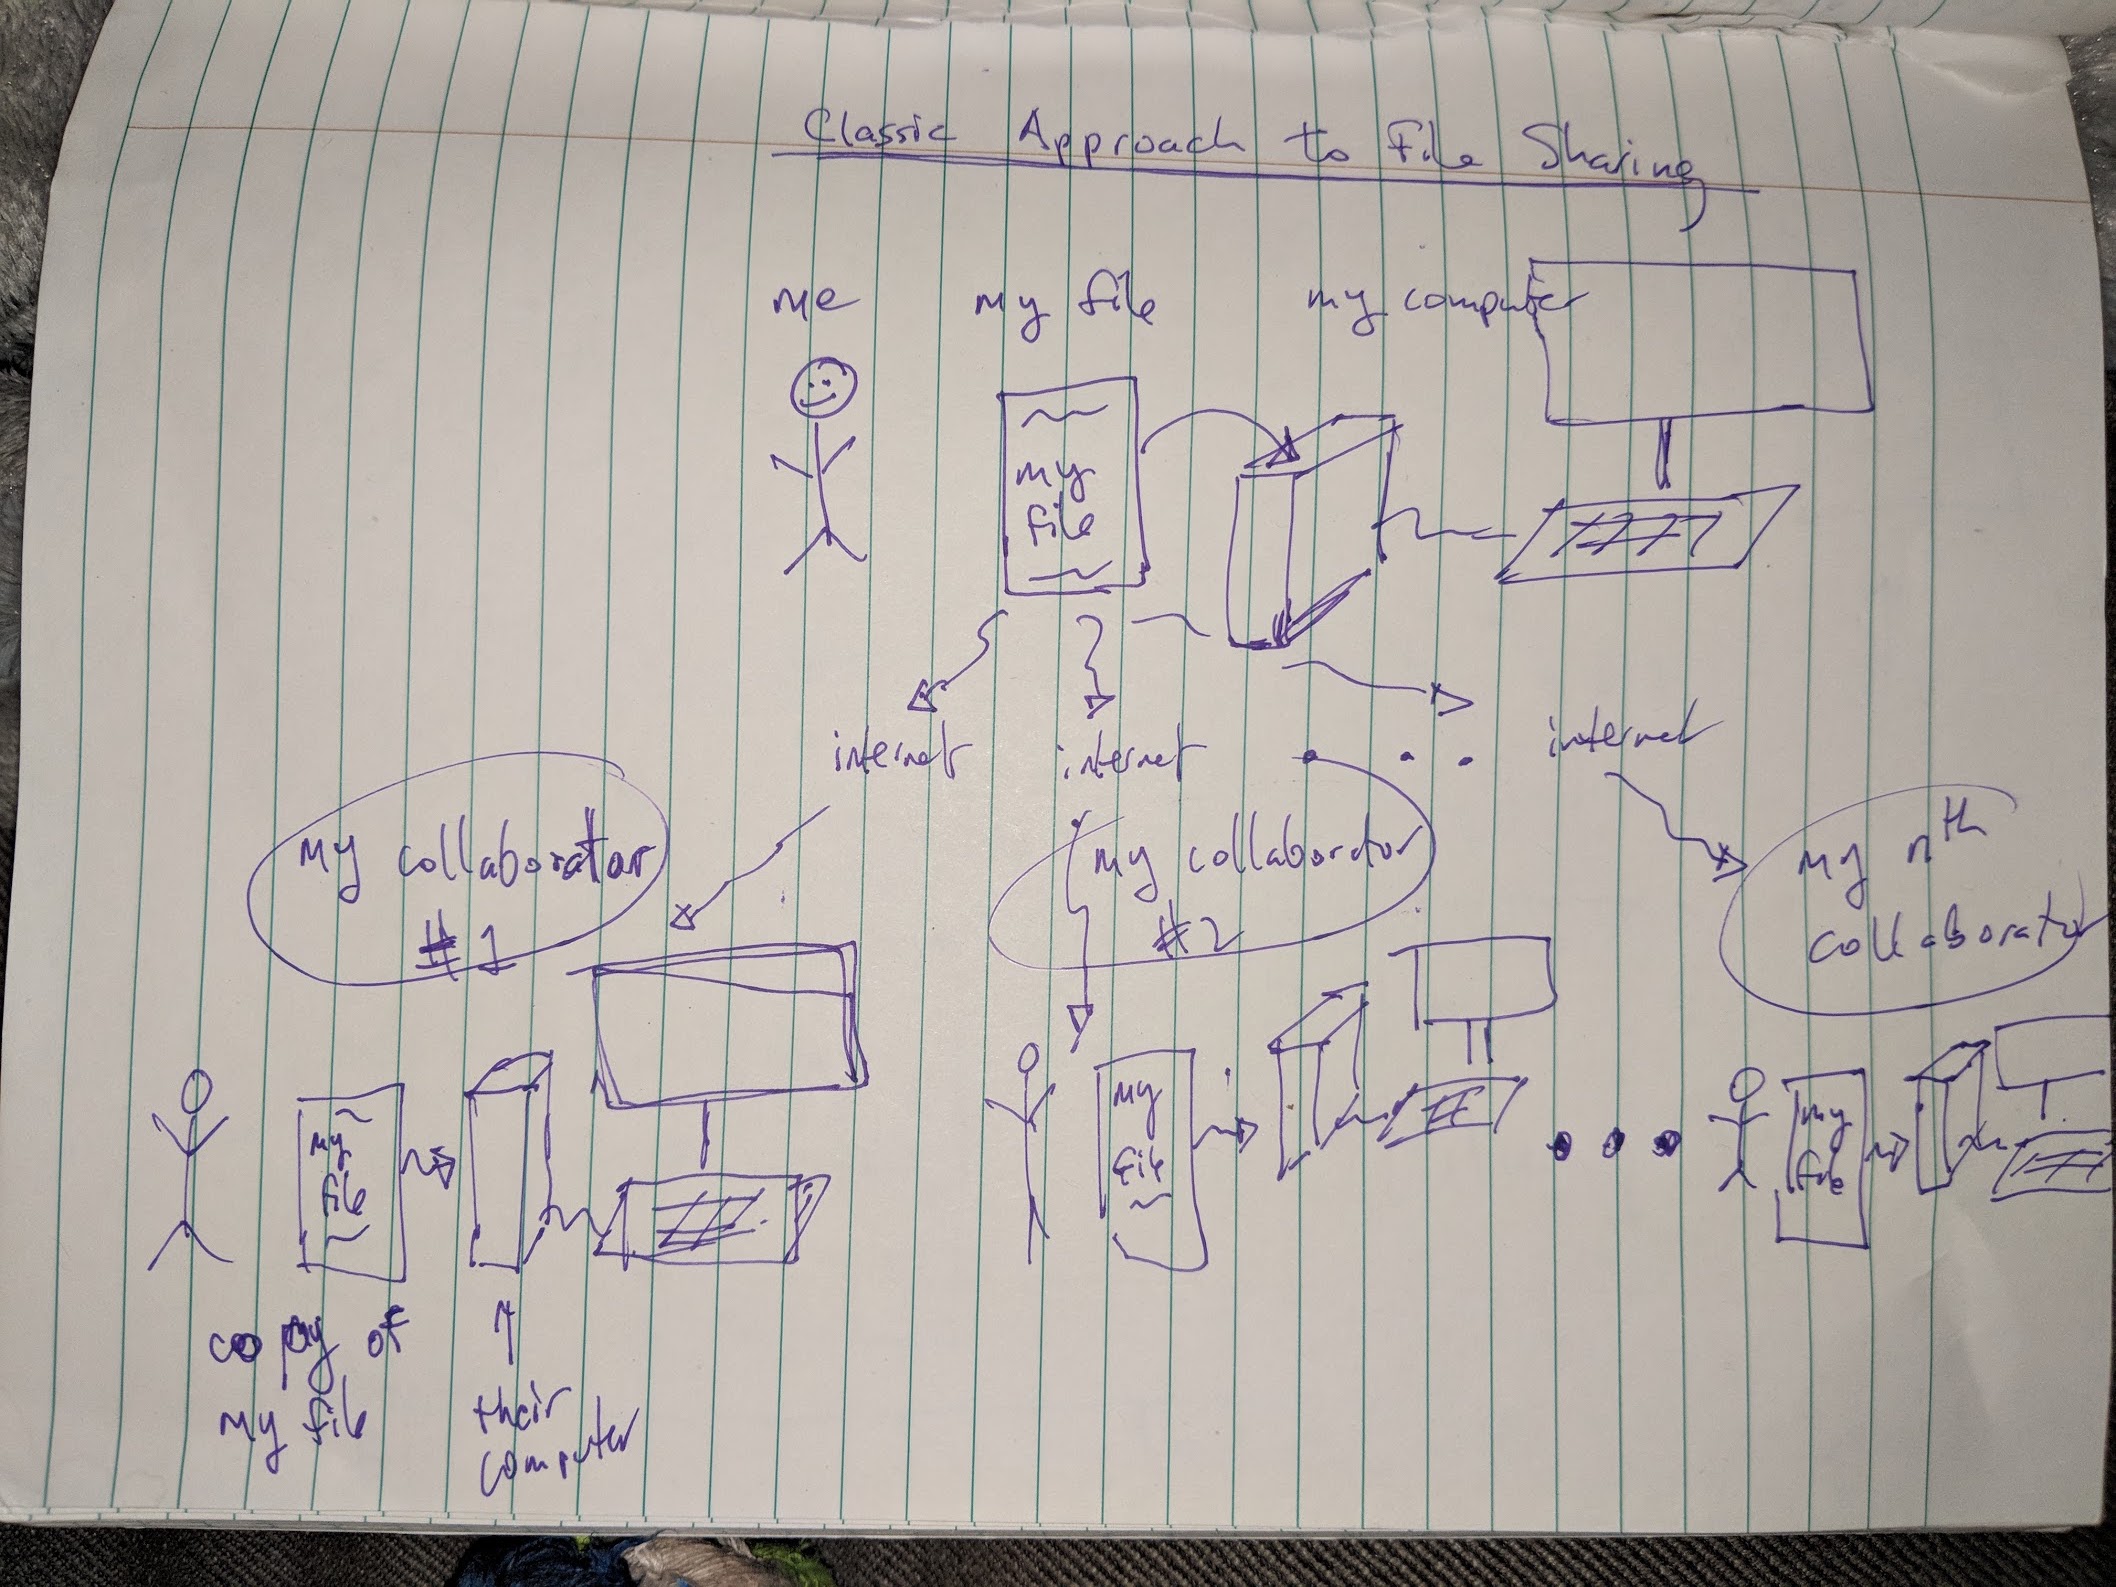 Classic Approach to File Sharing
me my file my computer
my
file
internet internet . . . internet
my collaborator
#1
my collaborator
#2
my nth
collaborator
my
file
my
file
my
file
copy of
my file
their
computer